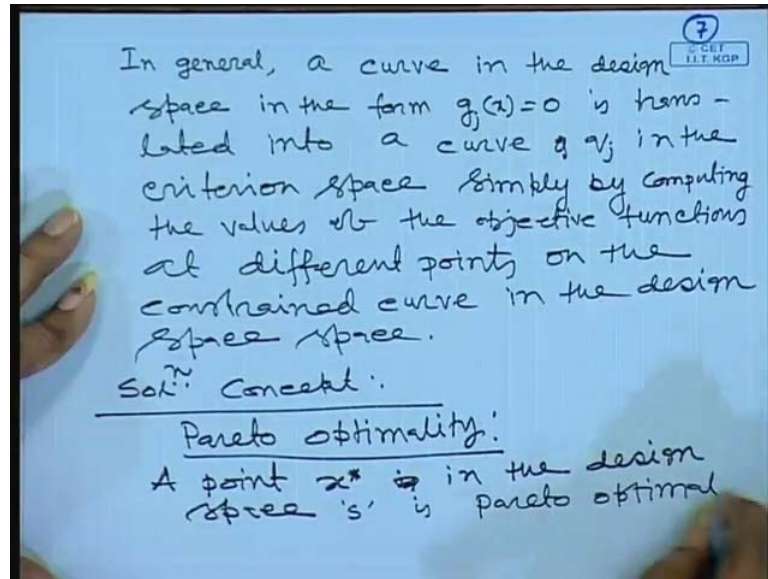 7
© CET
I.I.T. KGP
In general, a curve in the design
space in the form g_j(x)=0 is trans-
lated into a curve q_j in the
criterion space simply by computing
the values of the objective functions
at different points on the
constrained curve in the design
space space.
Solⁿ. Concept:
Pareto optimality:
A point x* in the design
space 's' is pareto optimal